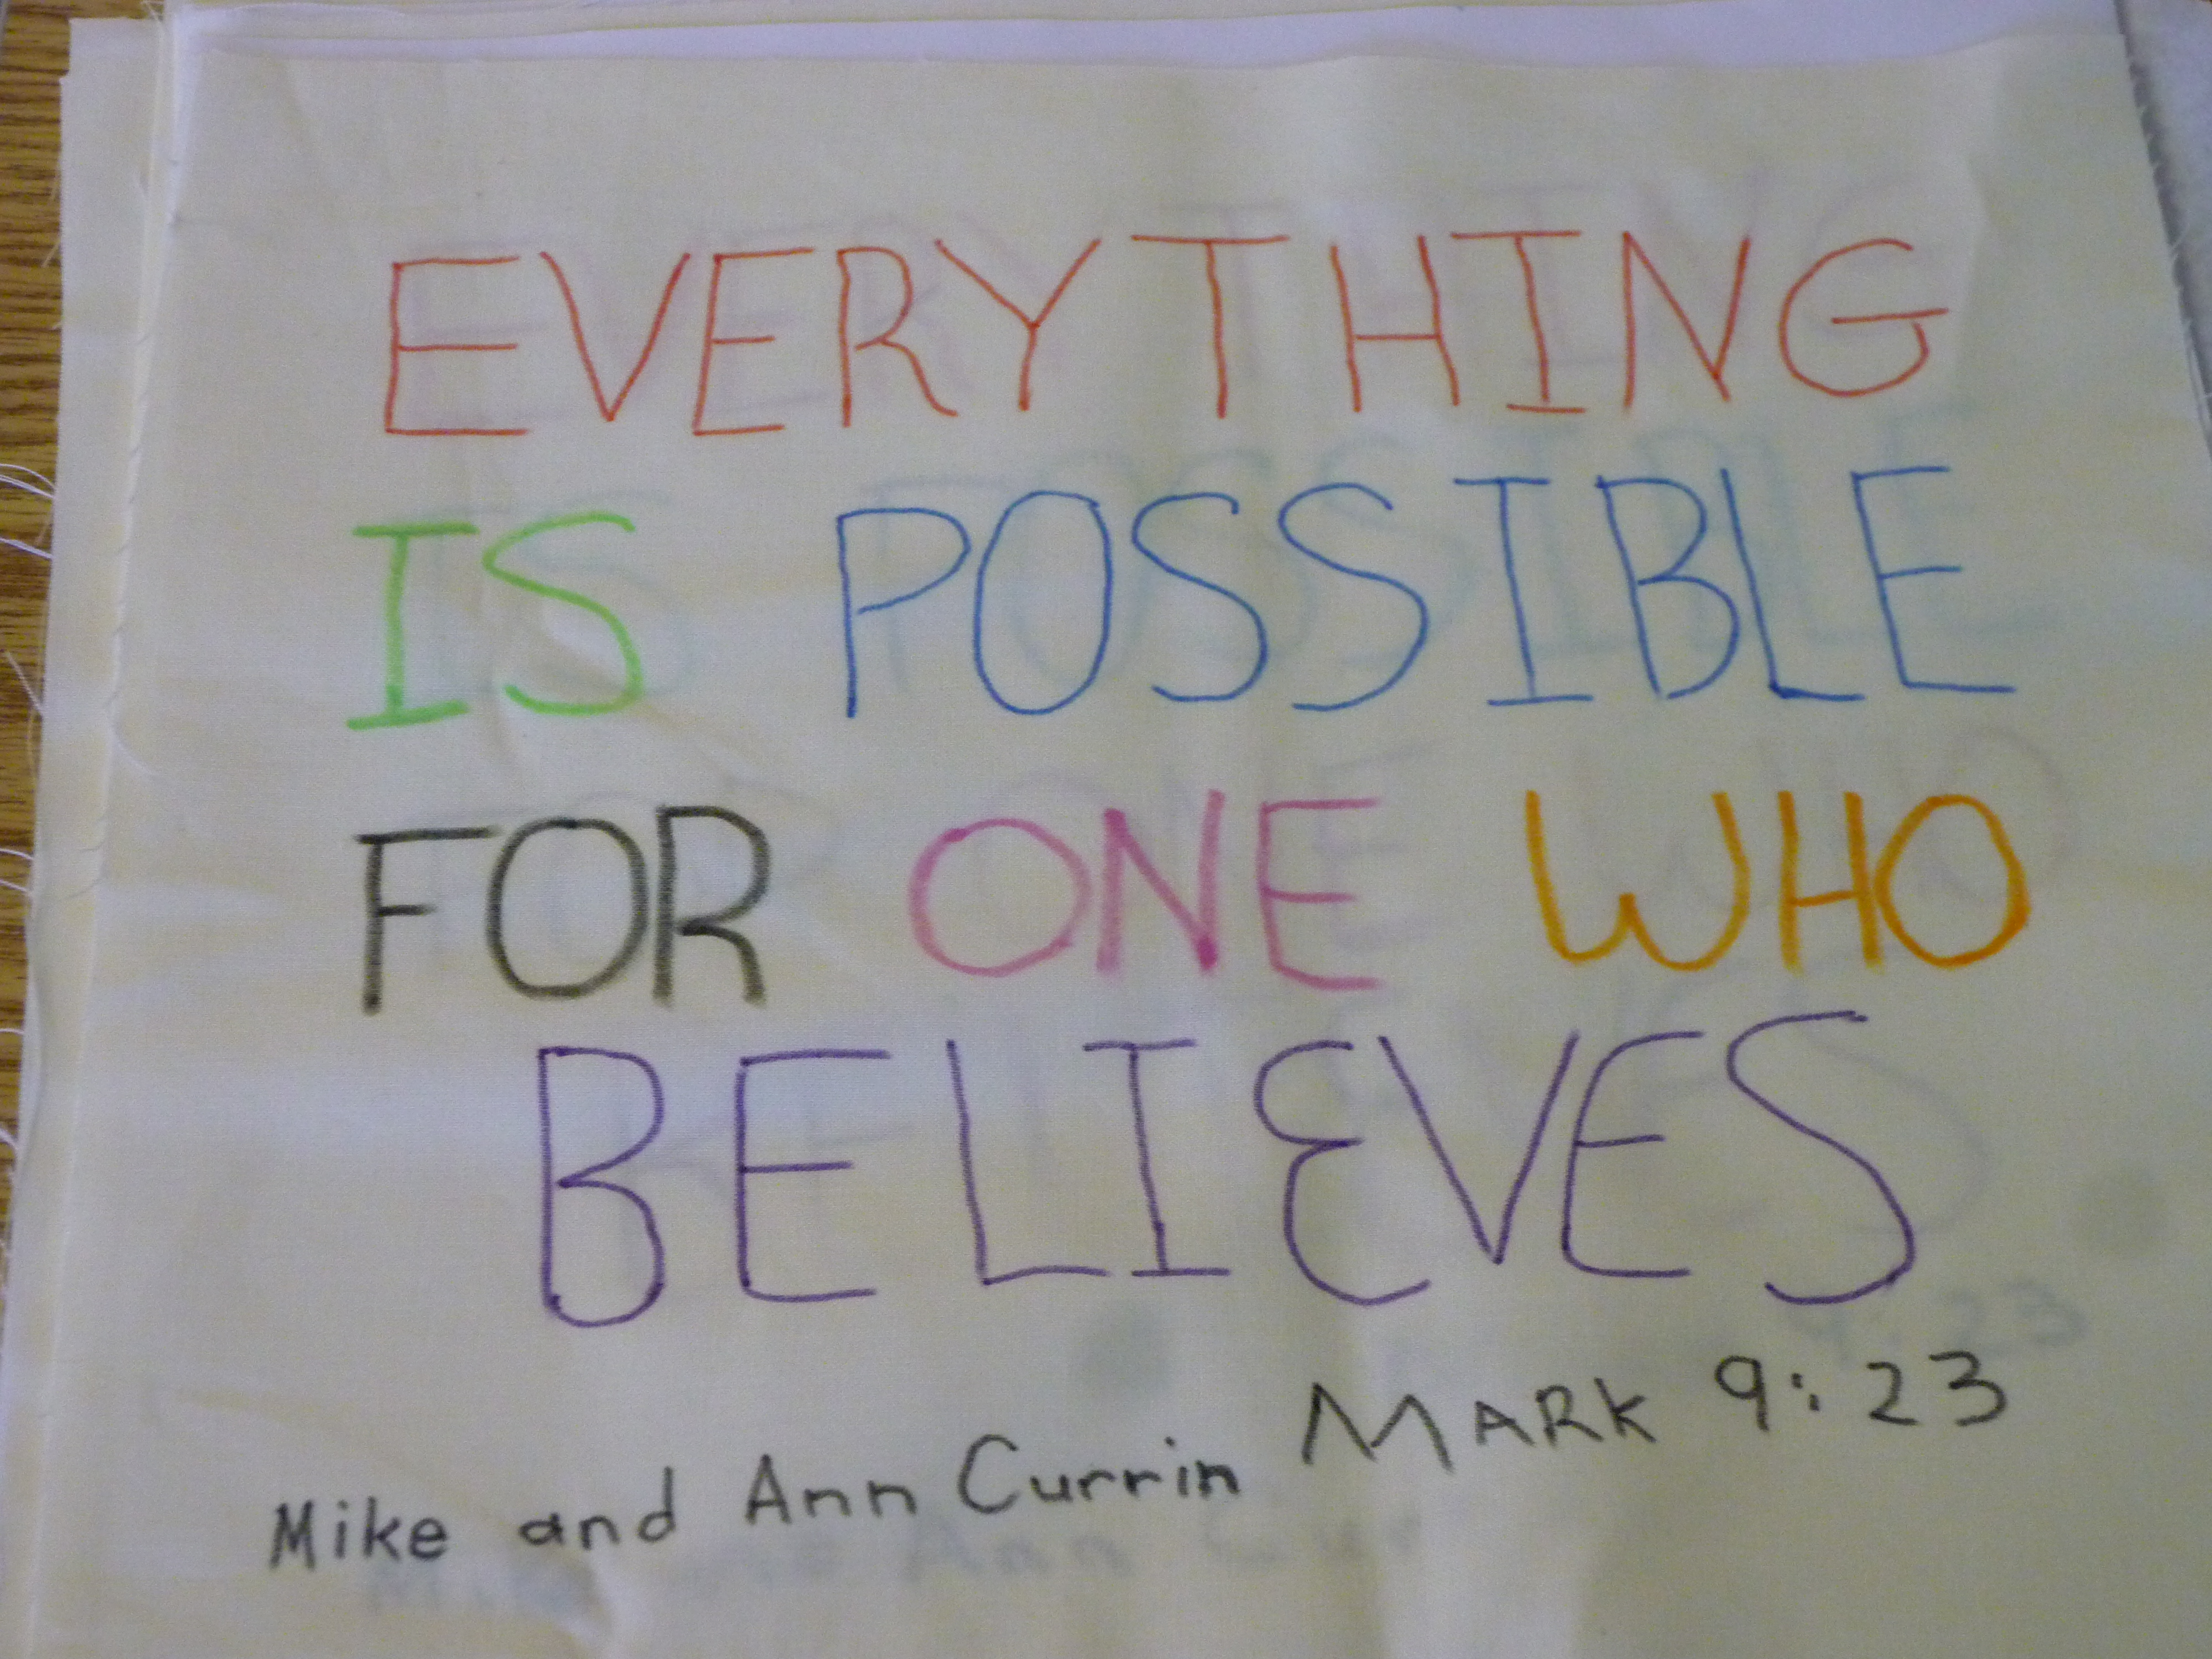 EVERYTHING
IS POSSIBLE
FOR ONE WHO
BELIEVES
MARK 9:23
Mike and Ann Currin